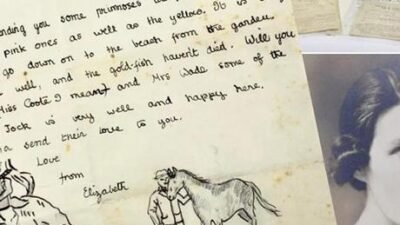 nding you some primroses
pink ones as well as the yellow. It is
go down on to the beach from the garden.
well, and the gold-fish haven't died. Will you
Miss Coote I meant and Mrs Wade some of the
Jock is very well and happy here.
send their love to you.
Love
from
Elizabeth